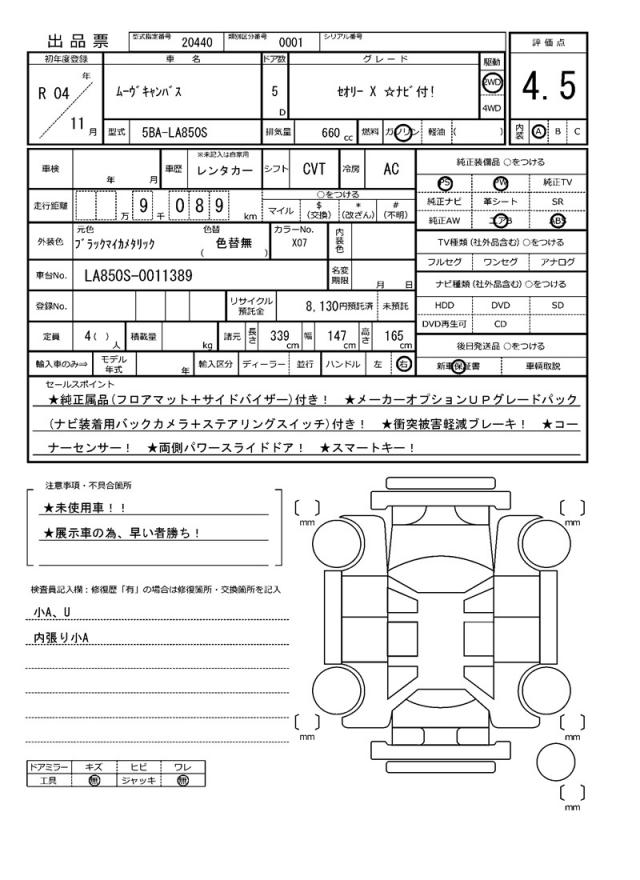 出品票
型式指定番号 20440 類別区分番号 0001 シリアル番号
評価点
4.5
内装 A B C
初年度登録 車名 ドア数 グレード 駆動
R 04 年 11 月
ﾑｰｳﾞｷｬﾝﾊﾞｽ
5 D
ｾｵﾘｰ X ☆ﾅﾋﾞ付!
2WD
4WD
型式 5BA-LA850S 排気量 660 cc 燃料 ガソリン 軽油 ( )
車検 年 月 車歴 ※未記入は自家用 レンタカー シフト CVT 冷房 AC
走行距離 万 9 千 0 8 9 km
○をつける
マイル $(交換) *(改ざん) #(不明)
外装色 元色 ﾌﾞﾗｯｸﾏｲｶﾒﾀﾘｯｸ 色替 ( 色替無 ) カラーNo. X07 内装色
車台No. LA850S-0011389 名変期限 月 日
登録No. リサイクル預託金 8,130円預託済 未預託
定員 4( )人 積載量 kg 諸元 長さ 339 cm 幅 147 cm 高さ 165 cm
輸入車のみ⇒ モデル年式 年 輸入区分 ディーラー 並行 ハンドル 左 右
純正装備品 ○をつける
PS PW 純正TV
純正ナビ 革シート SR
純正AW エアB ABS
TV種類 (社外品含む) ○をつける
フルセグ ワンセグ アナログ
ナビ種類 (社外品含む) ○をつける
HDD DVD SD
DVD再生可 CD
後日発送品 ○をつける
新車保証書 車輌取説
セールスポイント
★純正属品(フロアマット+サイドバイザー)付き! ★メーカーオプションUPグレードパック
(ナビ装着用バックカメラ+ステアリングスイッチ)付き! ★衝突被害軽減ブレーキ! ★コー
ナーセンサー! ★両側パワースライドドア! ★スマートキー!
注意事項・不具合箇所
★未使用車!!
★展示車の為、早い者勝ち!
検査員記入欄:修復歴「有」の場合は修復箇所・交換箇所を記入
小A、U
内張り小A
ドアミラー キズ ヒビ ワレ
工具 無 ジャッキ 無
mm
mm
mm
mm
mm